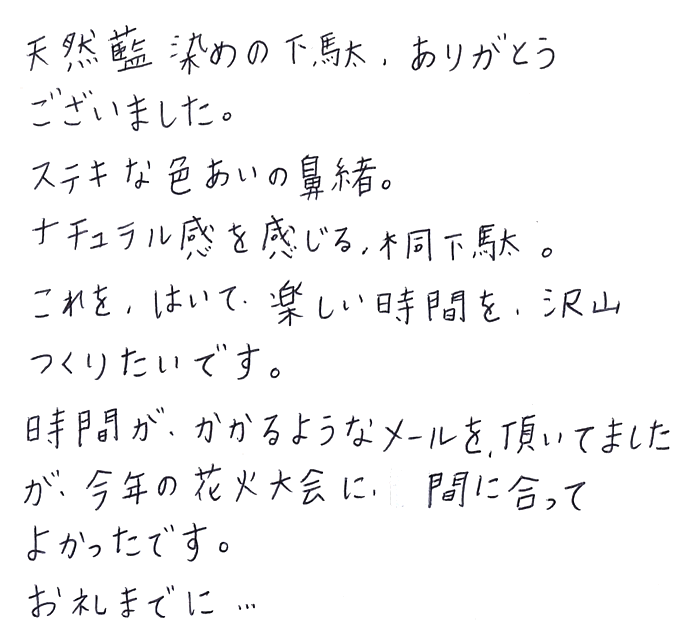 天然藍染めの下駄、ありがとう
ございました。
ステキな色あいの鼻緒。
ナチュラル感を感じる、桐下駄。
これを、はいて、楽しい時間を、沢山
つくりたいです。
時間が、かかるようなメールを、頂いてました
が、今年の花火大会に、間に合って
よかったです。
お礼までに…